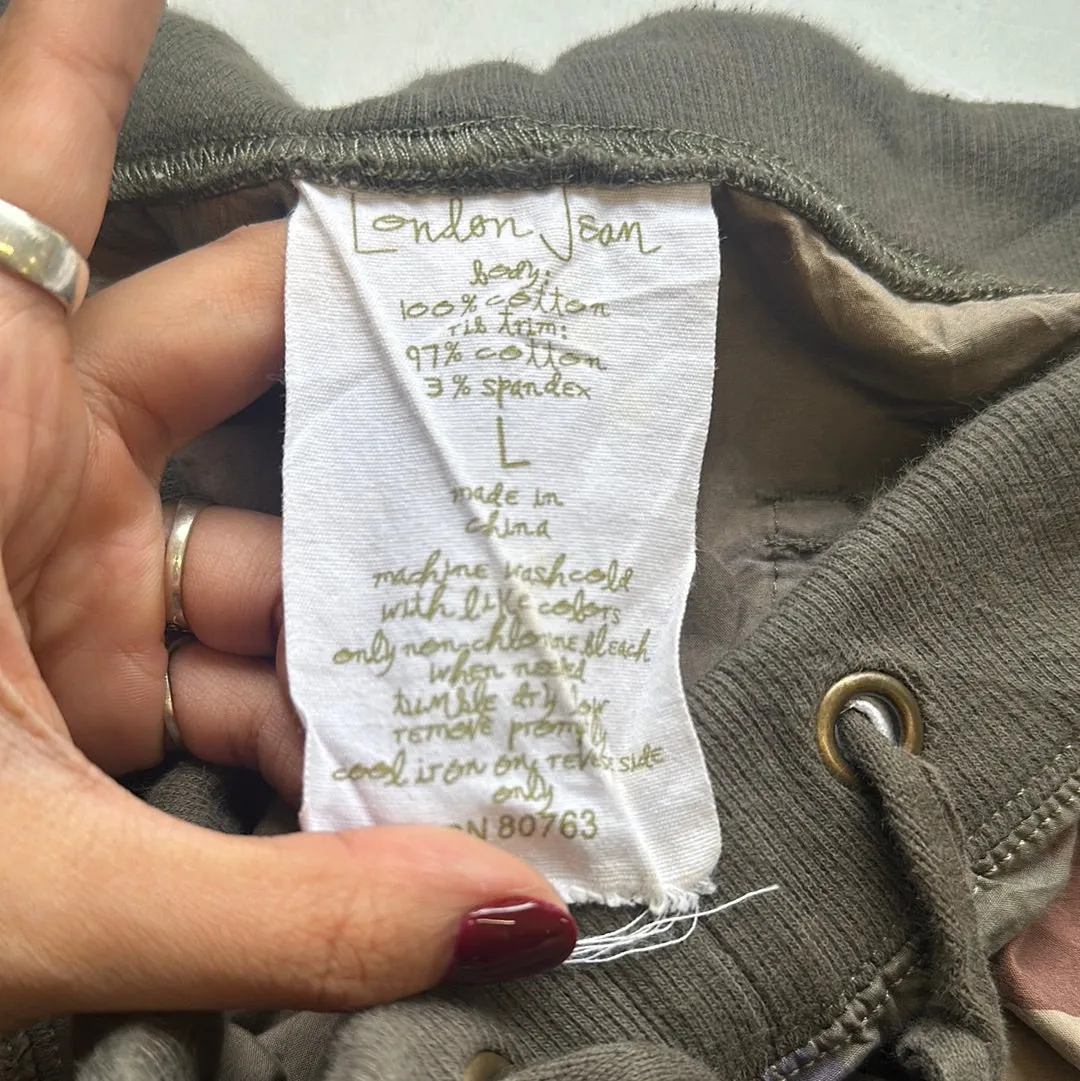 London Jean
body:
100% cotton
rib trim:
97% cotton
3% spandex
L
made in
china
machine wash cold
with like colors
only non-chlorine bleach
when needed
tumble dry low
remove promptly
cool iron on reverse side
only
N 80763